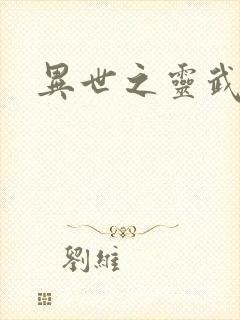 異世之靈武
劉維